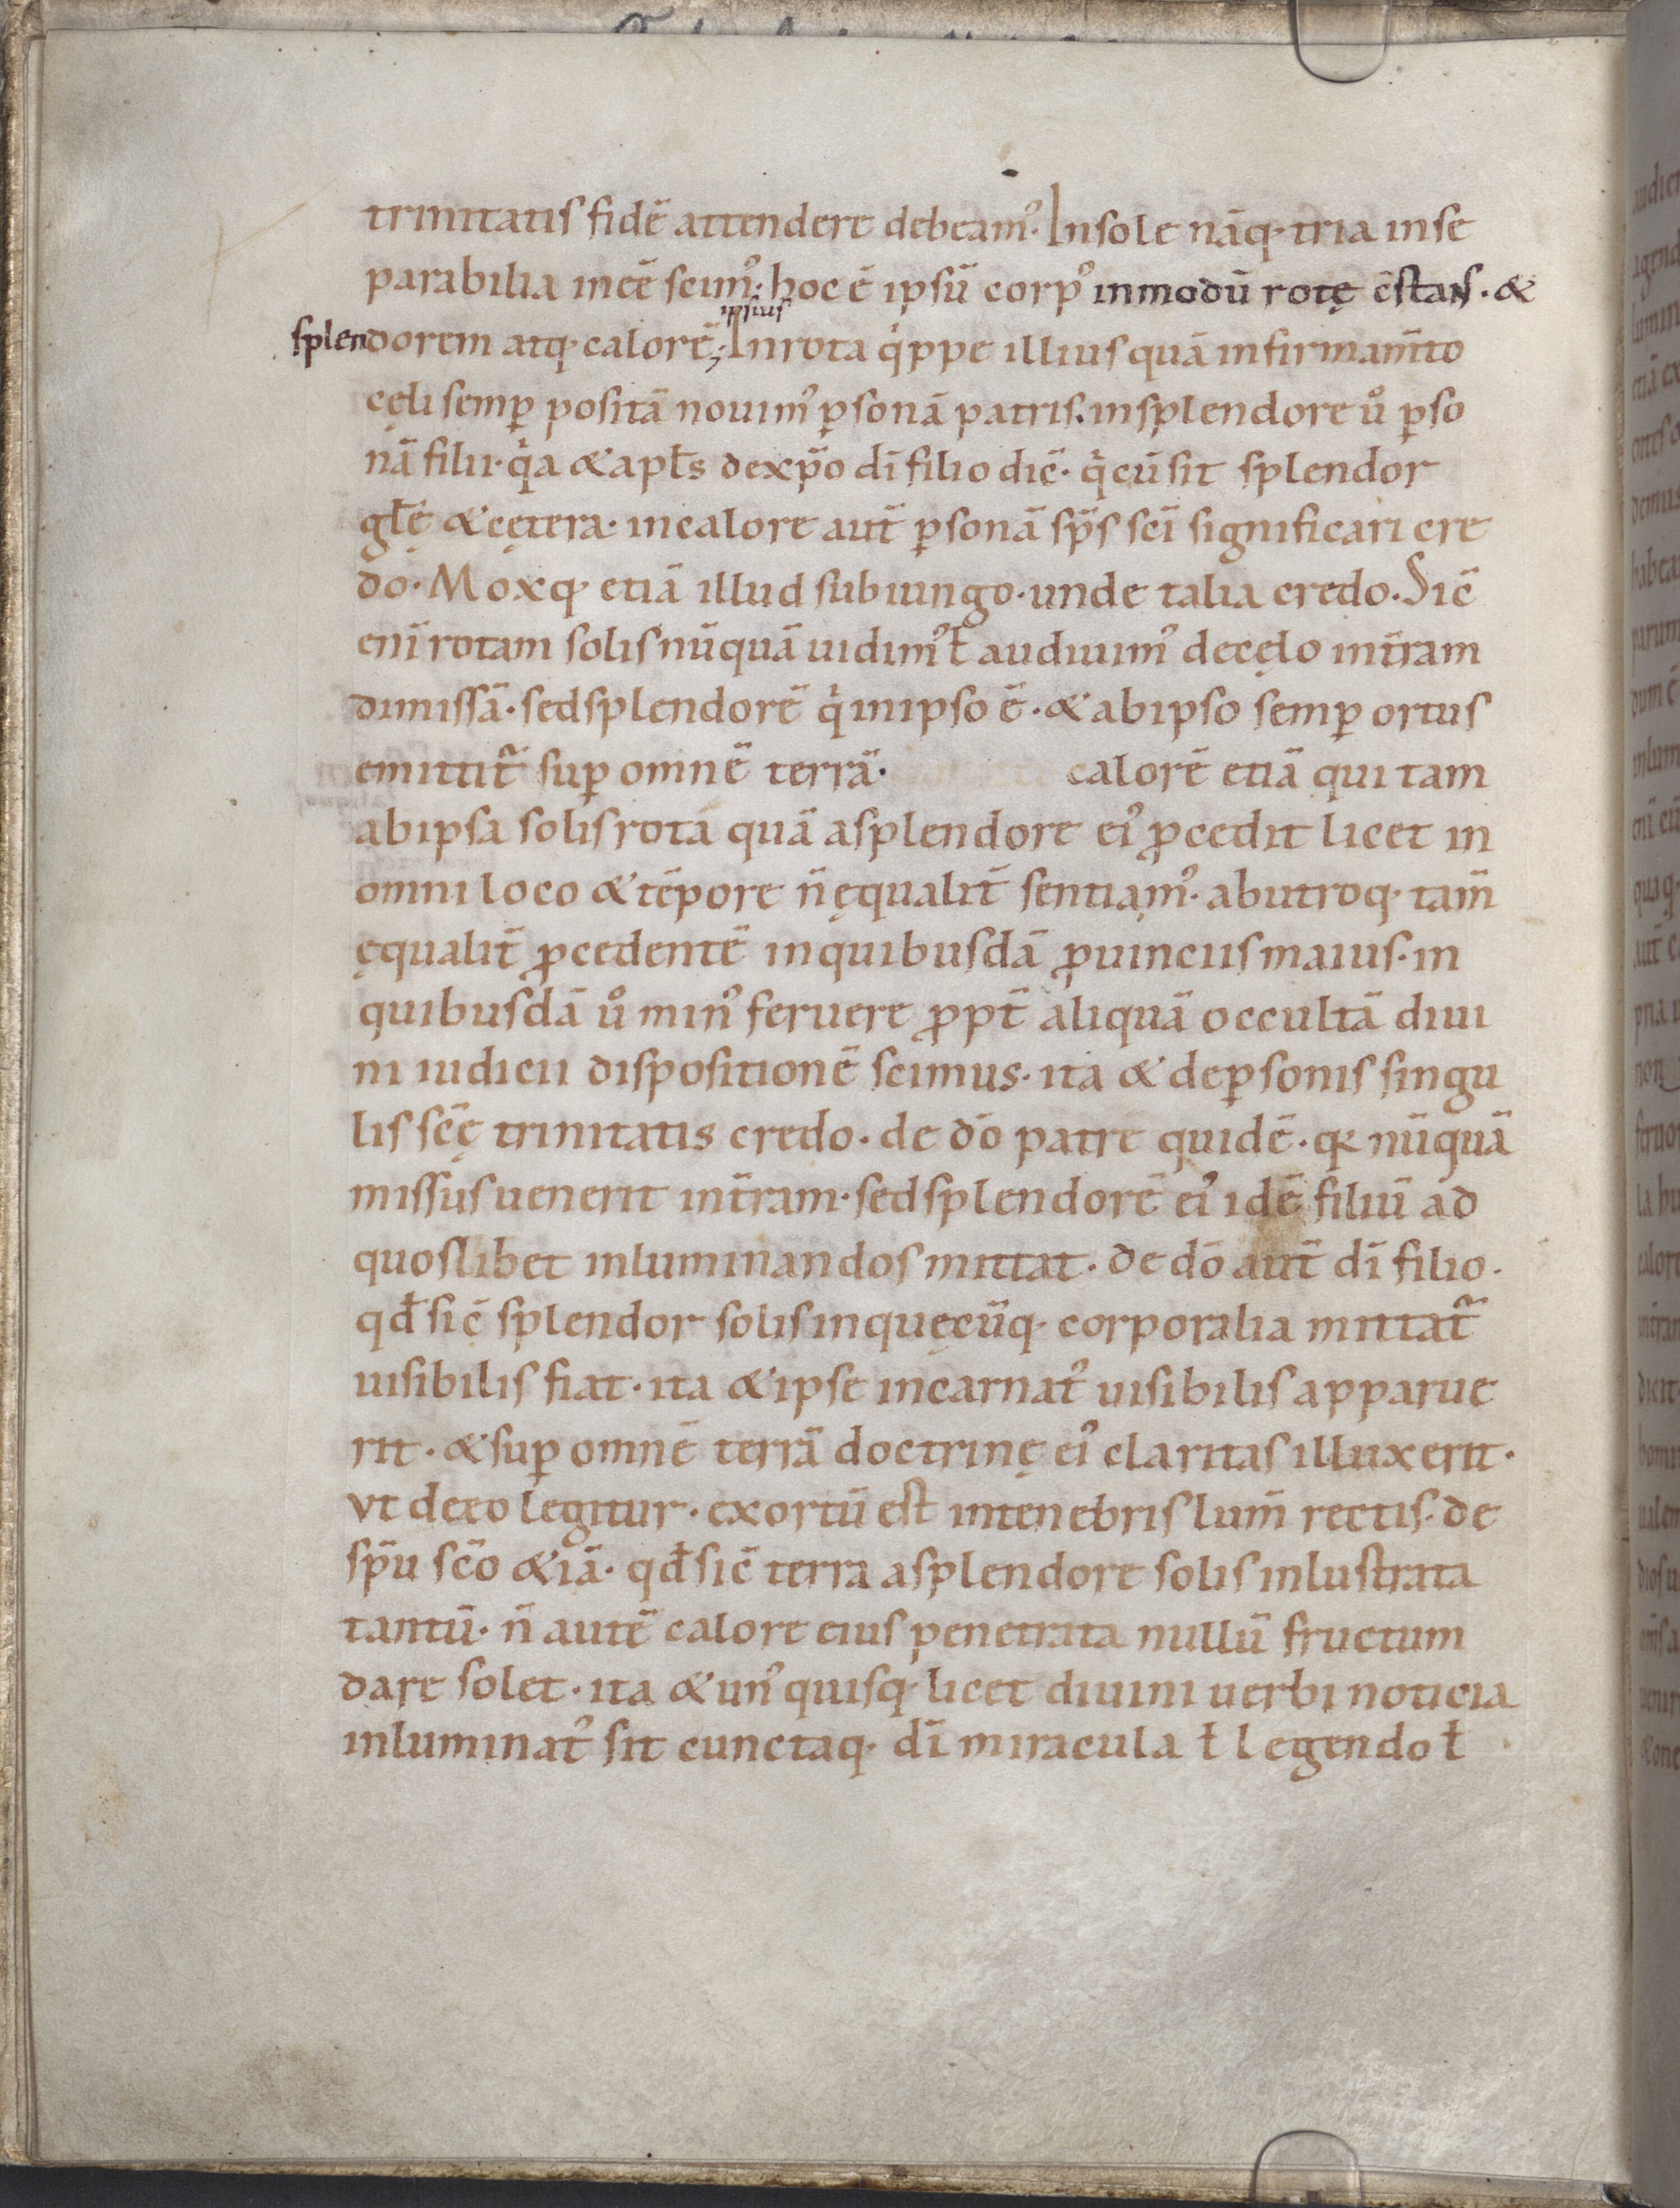 trinitatis fidē attendere debeam᾿. In sole nāq; tria inse
parabilia in eē scim᾿. hoc ē ipsū corp᾿ in modū rotę c̄stans. &
splendorem atq; calorē; In ipsius rota q̇ppe illius quā in firmam̄to
cęli semꝑ positā nouim᾿ ꝑsonā patris. in splendore u̇ ꝑso
nā filii. q̇a & apƚs de xp̄o dī filio dic̄. q̇ cū sit splendor
gƚę & cętera. in calore aut̄ ꝑsonā sp̄s sc̄i significari cre
do. Moxq; etiā illud subiungo. unde talia credo. Sic̄
enī rotam solis nūquā uidim᾿ ƚ audiuim᾿ de cęlo in t̄ram
dimissā. sed splendorē q̇ in ipso ē. & ab ipso semꝑ ortus
emittit᷑ suꝑ omnē terrā. calorē etiā qui tam
ab ipsa solis rota quā a splendore ei᾿ ꝓcedit licet in
omni loco & tēpore n̄ ęqualit̄ sentiam᾿. ab utroq; tam̄
ęqualit̄ ꝓcedentē in quibusdā ꝓuinciis maius. in
quibusdā u̇ min᾿ feruere ꝓpt̄ aliquā occultā diui
ni iudicii dispositionē scimus. ita & de ꝑsonis singu
lis sc̄ę trinitatis credo. de dō patre quidē. qđ nūquā
missus uenerit in t̄ram. sed splendorē ei᾿ idē filiū ad
quoslibet inluminandos mittat. de dō aut̄ dī filio.
qđ sic̄ splendor solis in quęcūq; corporalia mittat᷑
uisibilis fiat. ita & ipse incarnat᾿ uisibilis apparue
rit. & suꝑ omnē terrā doctrinę ei᾿ claritas illuxerit.
vt de eo legitur. exortū est in tenebris lum̄ rectis. de
sp̄u sc̄o &iā. qđ sic̄ terra a splendore solis inlustrata
tantū. n̄ autē calore eius penetrata nullū fructum
dare solet. ita & un᾿quisq; licet diuini uerbi noticia
inluminat᾿ sit cunctaq; dī miracula ƚ legendo ƚ